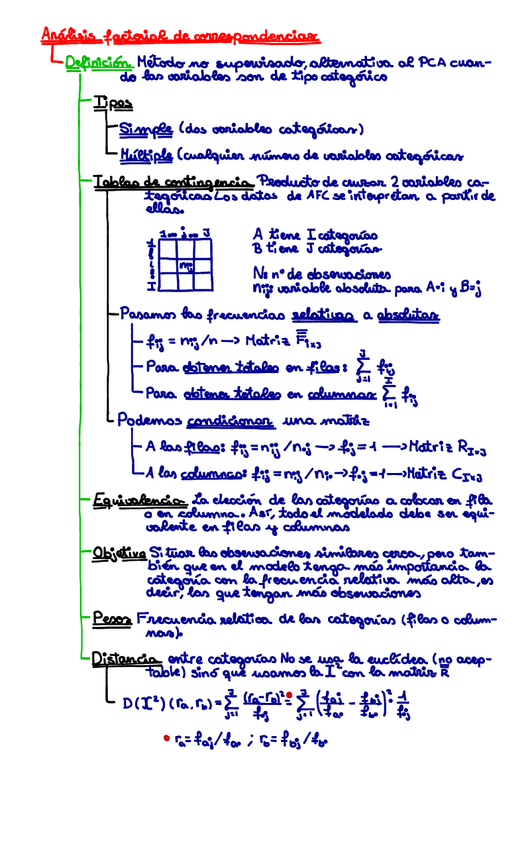 Análisis factorial de correspondencias
Definición Método no supervisado, alternativa al PCA cuan-
do las variables son de tipo categórico
Tipos
Simple (dos variables categóricas)
Múltiple (cualquier número de variables categóricas
Tablas de contingencia Producto de cruzar 2 variables ca-
tegóricas Los datos de AFC se interpretan a partir de
ellas.
1 ... j ... J
A tiene I categorías
B tiene J categorías
1 ... i ... I
nij
N: nº de observaciones
nij: variable absoluta para A=i y B=j
Pasamos las frecuencias relativas a absolutas
fij = nij/n → Matriz F̿IxJ
Para obtener totales en filas: Σ(j=1, J) fij
Para obtener totales en columnas: Σ(i=1, I) fij
Podemos condicionar una matriz
A las filas: fij = nij/n.j → f.j = 1 → Matriz RIxJ
A las columnas: fij = nij/ni. → f.j = 1 → Matriz CIxJ
Equivalencia La elección de las categorías a colocar en fila
o en columna. Así, todo el modelado debe ser equi-
valente en filas y columnas
Objetivo Situar las observaciones similares cerca, pero tam-
bién que en el modelo tenga más importancia la
categoría con la frecuencia relativa más alta, es
decir, las que tengan más observaciones
Pesos Frecuencia relativa de las categorías (filas o colum-
nas).
Distancia entre categorías No se usa la euclídea (no acep-
table) sinó que usamos la I² con la matriz R̿
D(I²)(ra,rb) = Σ(j=1, J) (ra-rb)²/f.j = Σ(j=1, J) (faj/fa. - fbj/fb.)² · 1/f.j
ra = faj/fa. ; rb = fbj/fb.